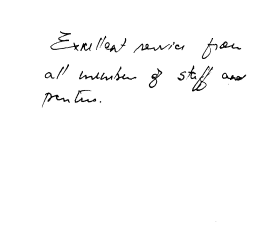 Excellent service from
all members of staff and